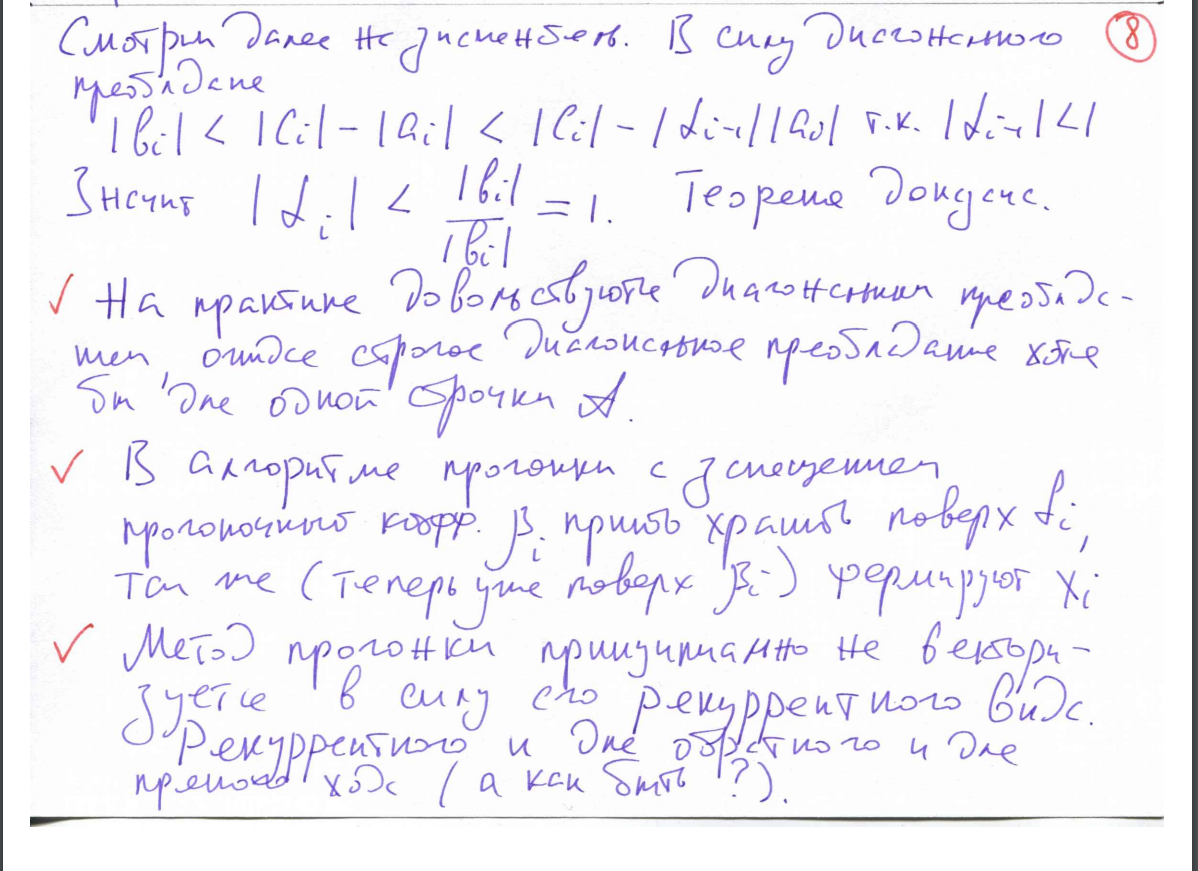 Смотрим далее на знаменатель. В силу диагонального ⑧
преобладания
|bᵢ| < |cᵢ| − |aᵢ| < |cᵢ| − |αᵢ₋₁||aᵢ| т.к. |αᵢ₋₁|<1
Значит |αᵢ| < |bᵢ|/|bᵢ| = 1. Теорема доказана.
✓ На практике довольствуются диагональным преоблада-
нием, ожидая строгое диагональное преобладание хотя
бы для одной строчки A.
✓ В алгоритме прогонки с замещением
прогоночный коэфф. βᵢ хранить поверх fᵢ,
там же (теперь уже поверх βᵢ) формируют xᵢ
✓ Метод прогонки принципиально не вектори-
зуется в силу его рекуррентного вида.
Рекуррентного и для обратного и для
прямого хода (а как быть?).